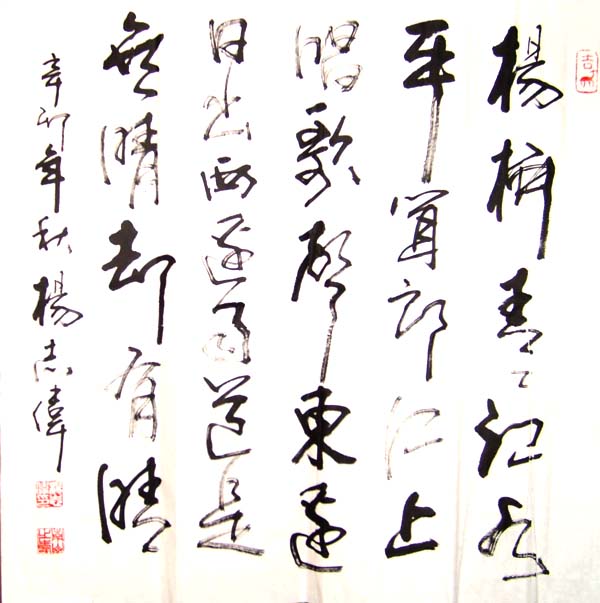 楊柳青々江水
平聞郎江上
唱歌聲東邊
日出西邊雨道是
無晴却有晴
辛卯年秋楊志偉